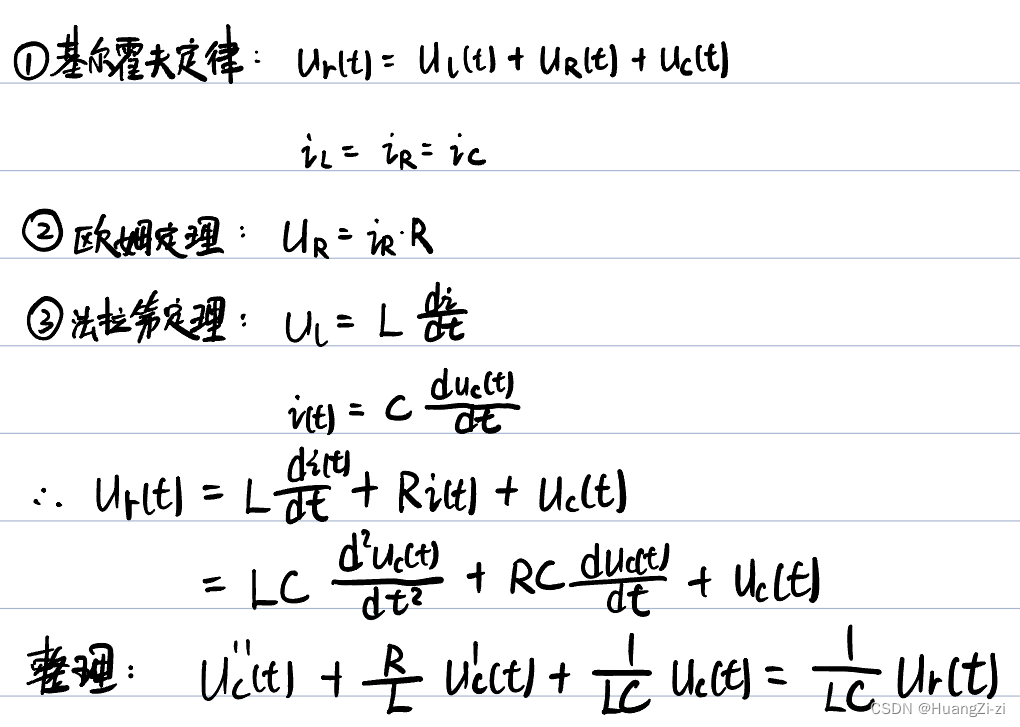 ①基尔霍夫定律: u_r(t) = u_l(t) + u_R(t) + u_c(t)
i_L = i_R = i_C
②欧姆定理: u_R = i_R·R
③法拉第定理: u_l = L di/dt
i(t) = C du_c(t)/dt
∴ u_r(t) = L di(t)/dt + Ri(t) + u_c(t)
= LC d²u_c(t)/dt² + RC du_c(t)/dt + u_c(t)
整理: u_c''(t) + R/L u_c'(t) + 1/LC u_c(t) = 1/LC u_r(t)
CSDN @HuangZi-zi